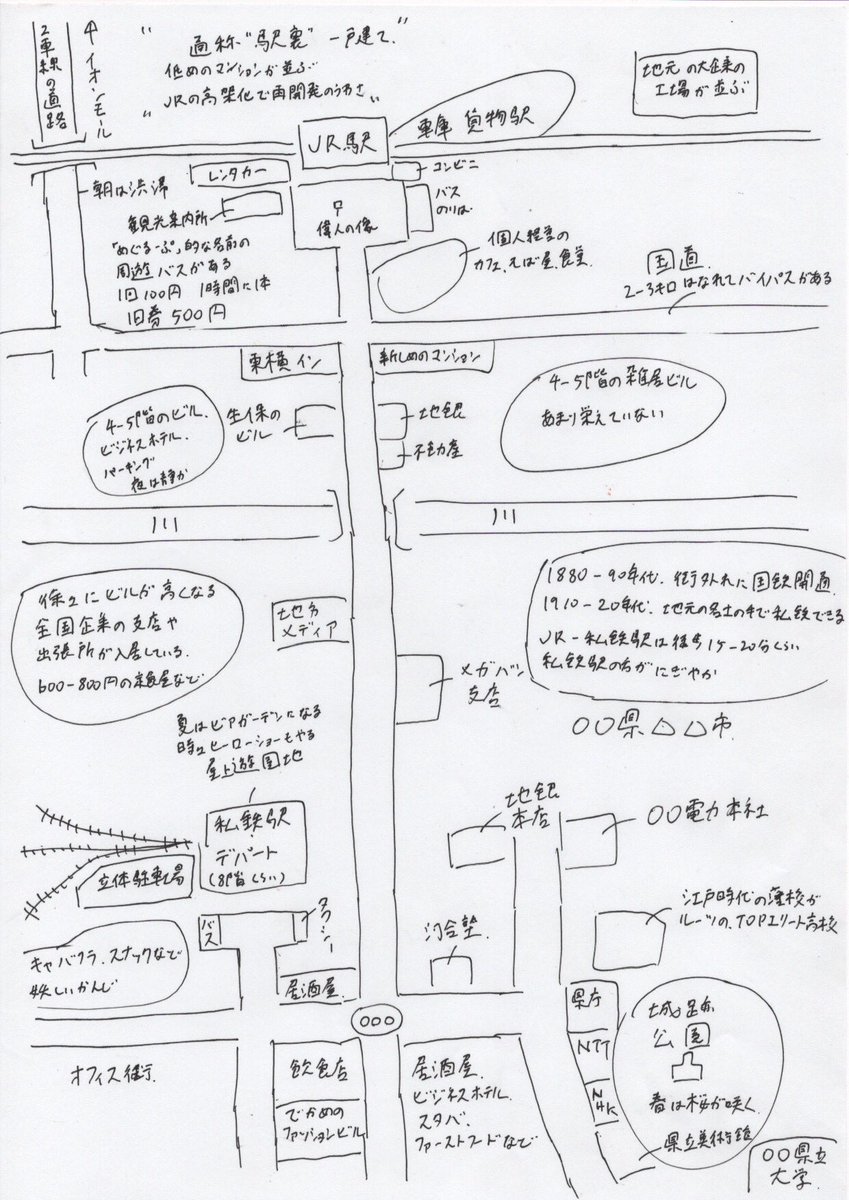 2車線の道路
↑イオンモール
" 通称"駅裏" 一戸建て
低めのマンションが並ぶ
" JRの高架化で再開発のうわさ"
地元の大企業の
工場が並ぶ
車庫 貨物駅
JR駅
レンタカー
コンビニ
バス
のりば
朝は渋滞
観光案内所
偉人の像
「めぐるーぷ」的な名前の
周遊バスがある
1回100円 1時間に1本
1日券500円
個人経営の
カフェ、そば屋、食堂
国道
2-3キロはなれてバイパスがある
東横イン
新しめのマンション
4-5階のビル、
ビジネスホテル、
パーキング
夜は静か
生保の
ビル
地銀
不動産
4-5階の雑居ビル
あまり栄えていない
川
川
徐々にビルが高くなる
全国企業の支店や
出張所が入居している
600-800円の定食屋など
地方
メディア
メガバン
支店
1880-90年代、街外れに国鉄開通
1910-20年代、地元の名士の手で私鉄できる
JR-私鉄駅は徒歩15-20分くらい
私鉄駅の方がにぎやか
〇〇県△△市
夏はビアガーデンになる
時々ヒーローショーもやる
屋上遊園地
私鉄駅
デパート
(8階くらい)
立体駐車場
地銀
本店
〇〇電力本社
江戸時代の藩校が
ルーツの、TOPエリート高校
バス
タクシー
河合塾
キャバクラ、スナックなど
妖しいかんじ
居酒屋
県庁
城跡
公園
NTT
NHK
春は桜が咲く
県立美術館
〇〇県立
大学
オフィス街
飲食店
でかめの
ファッションビル
居酒屋
ビジネスホテル
スタバ
ファーストフードなど